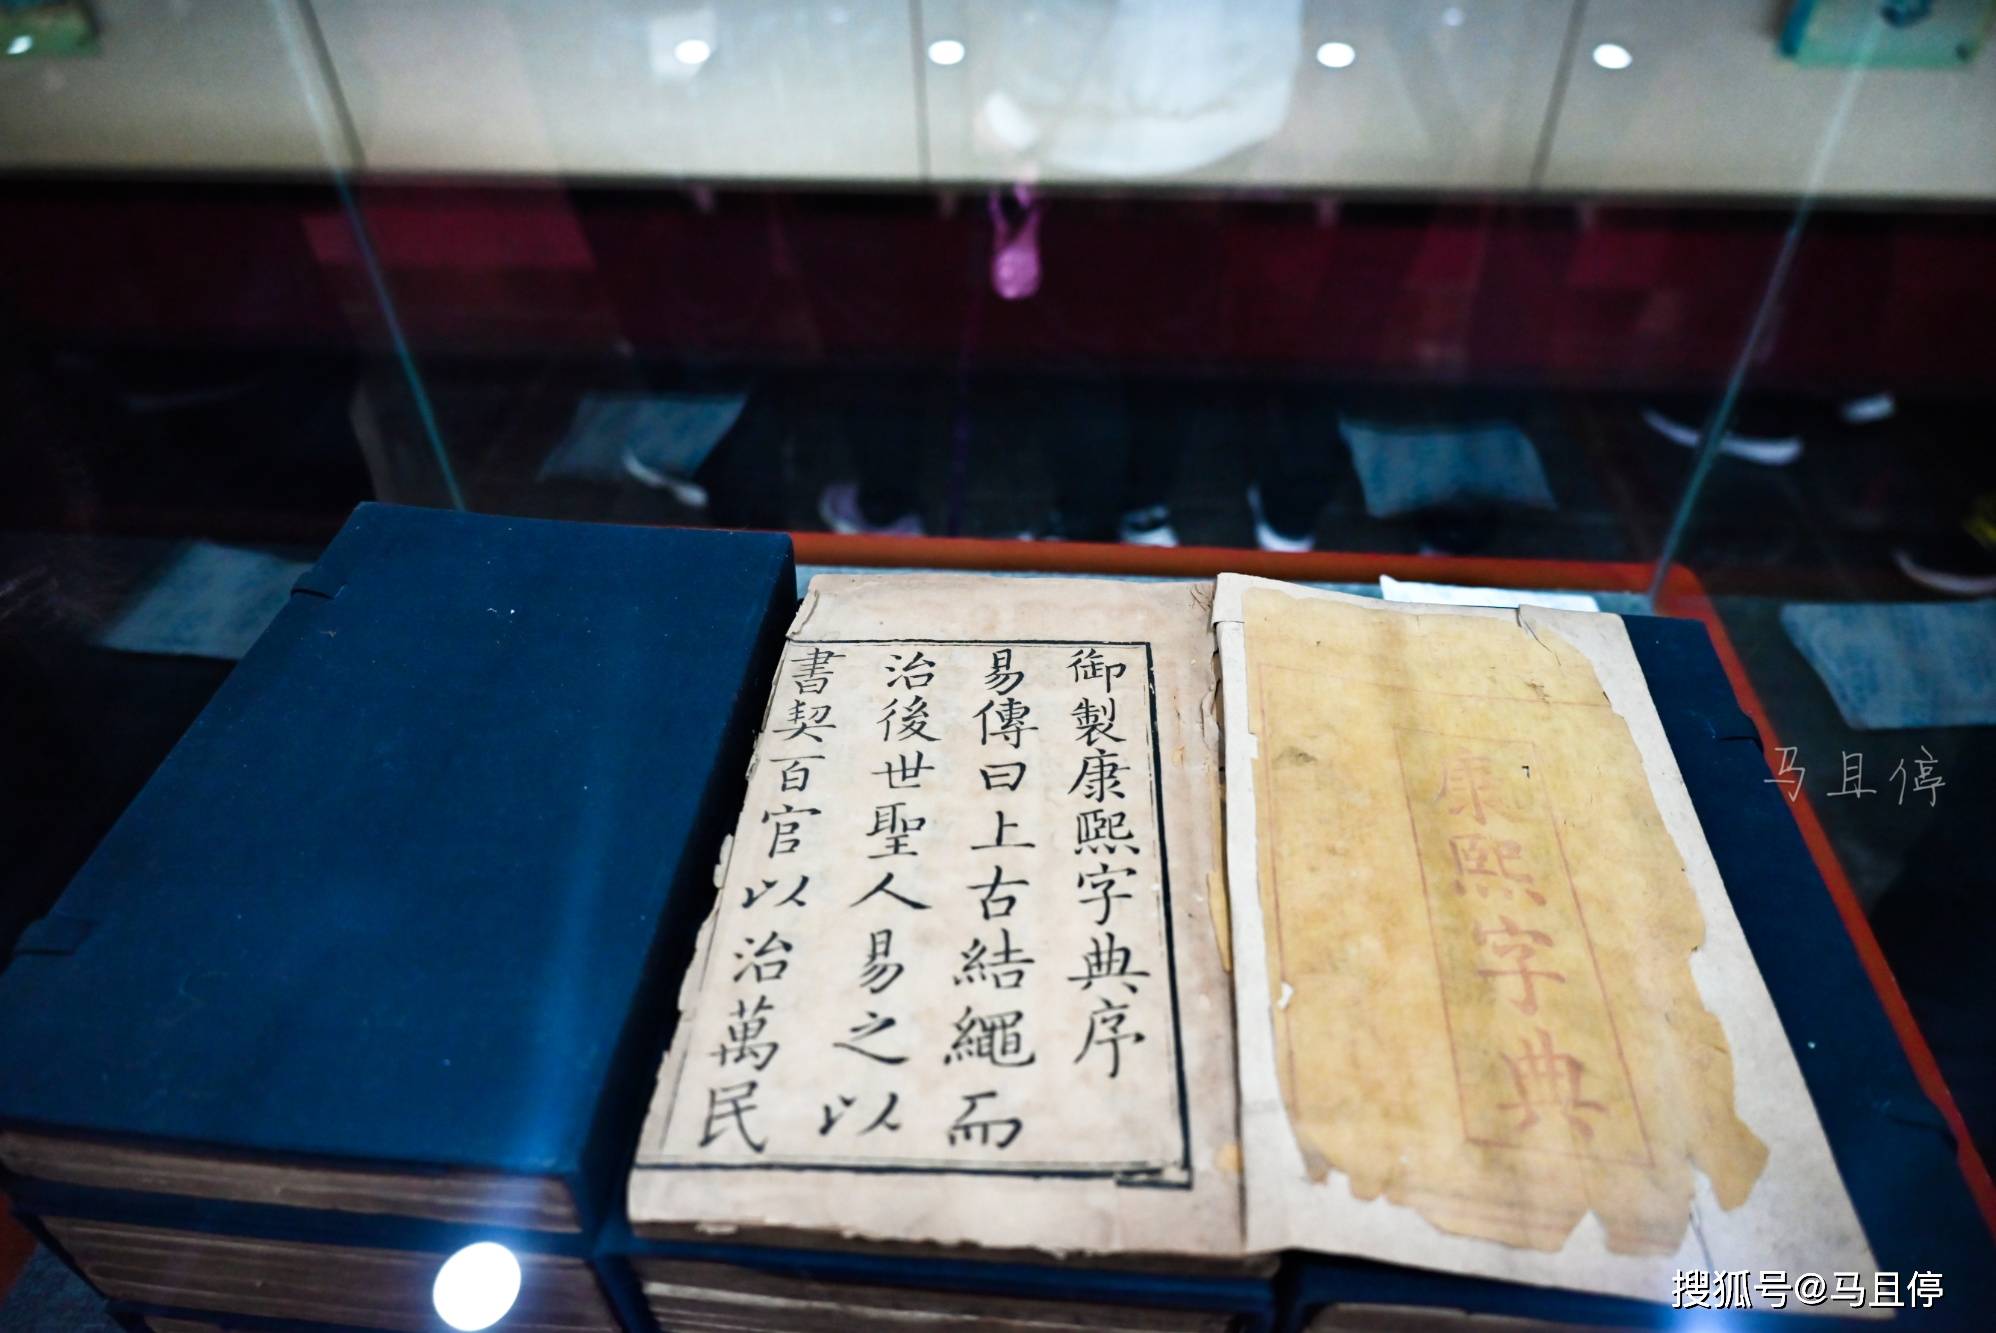 康熙字典
御製康熙字典序
易傳曰上古結繩而
治後世聖人易之以
書契百官以治萬民
马且停
搜狐号@马且停